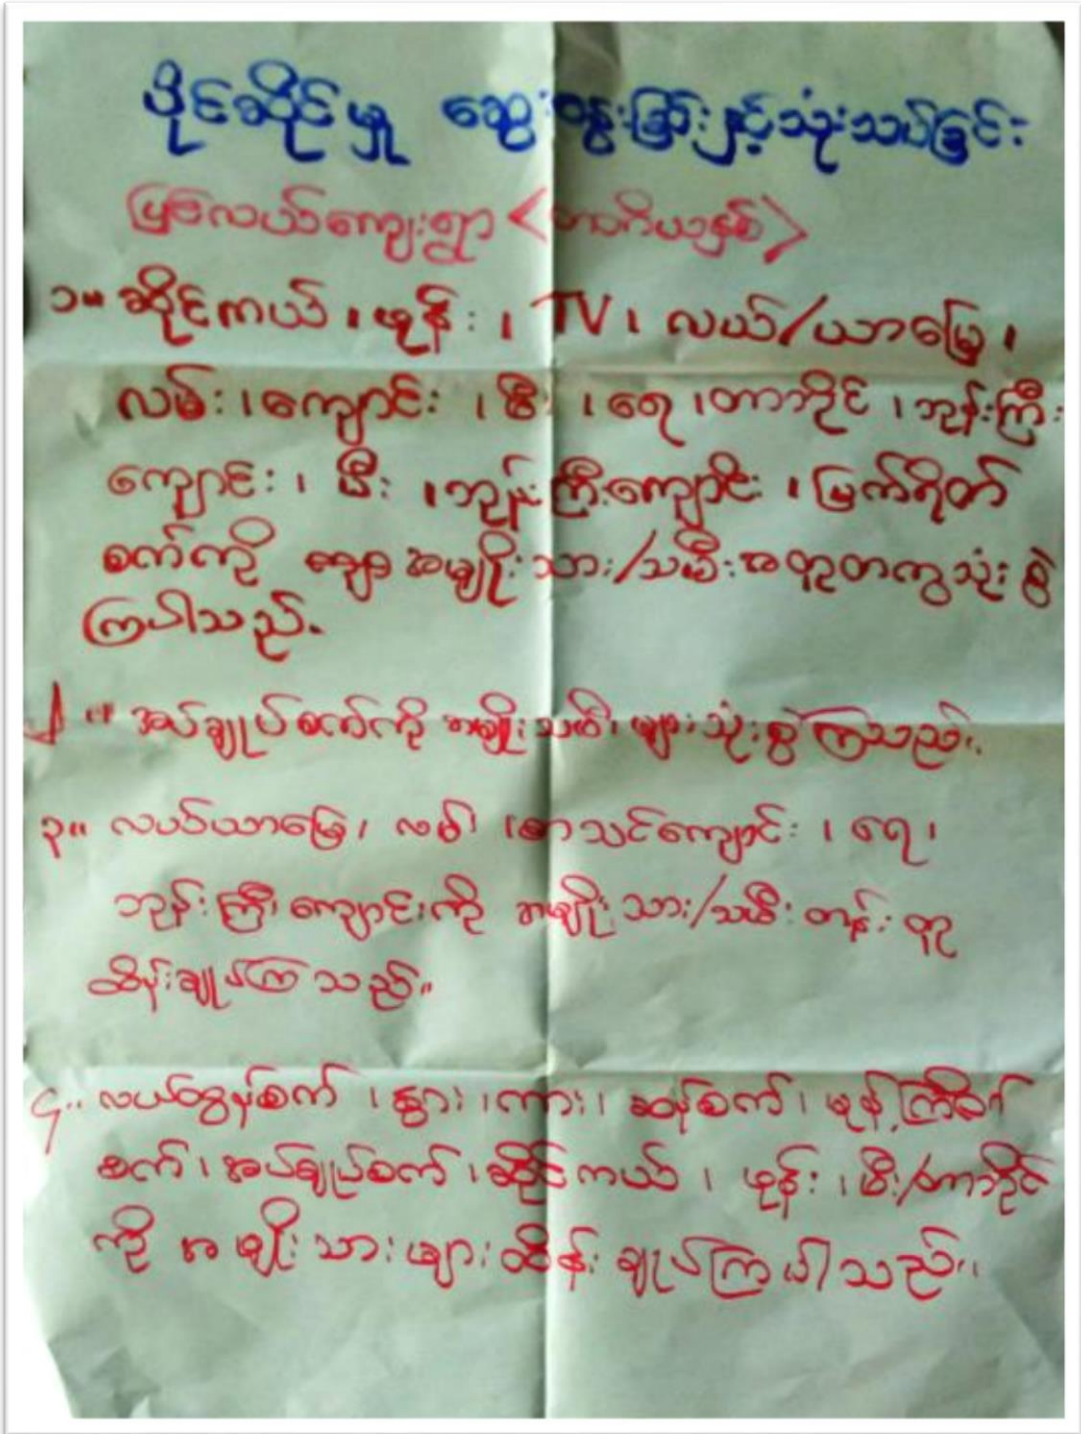 ပိုင်ဆိုင်မှု ဆွေးနွေးခြင်းနှင့်သုံးသပ်ခြင်း
မြစ်လယ်ကျေးရွာ
၁။ ဆိုင်ကယ် ၊ ဖုန်း ၊ TV ၊ လယ်/ယာမြေ ၊
လမ်း ၊ကျောင်း ၊ မီး ၊ ရေ ၊တာဘိုင် ၊ ဘုန်းကြီး
ကျောင်း ၊ မီး ၊ဘုန်းကြီးကျောင်း ၊ မြက်ရိတ်
စက်ကို ကျား အမျိုး သား/သမီး အတူတကွသုံး စွဲ
ကြပါသည်။
၂။ အပ်ချုပ်စက်ကို အမျိုးသမီး များသုံးစွဲကြသည်။
၃။ လယ်ယာမြေ ၊ လမ်း ၊စာသင်ကျောင်း ၊ ရေ ၊
ဘုန်းကြီး ကျောင်းကို အမျိုး သား/သမီး တန်း တူ
ထိန်းချုပ်ကြ သည်။
၄။ လယ်ထွန်စက် ၊ နွား ၊ကား ၊ ဆန်စက် ၊ မုန့်ကြိတ်
စက် ၊ အပ်ချုပ်စက် ၊ ဆိုင်ကယ် ၊ ဖုန်း ၊ မီး/တာဘိုင်
ကို အမျိုး သား များ ထိန်း ချုပ်ကြ ပါ သည်။